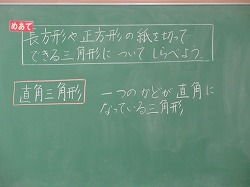 めあて
長方形や正方形の紙を切って
できる三角形について しらべよう
直角三角形
一つのかどが直角に
なっている三角形